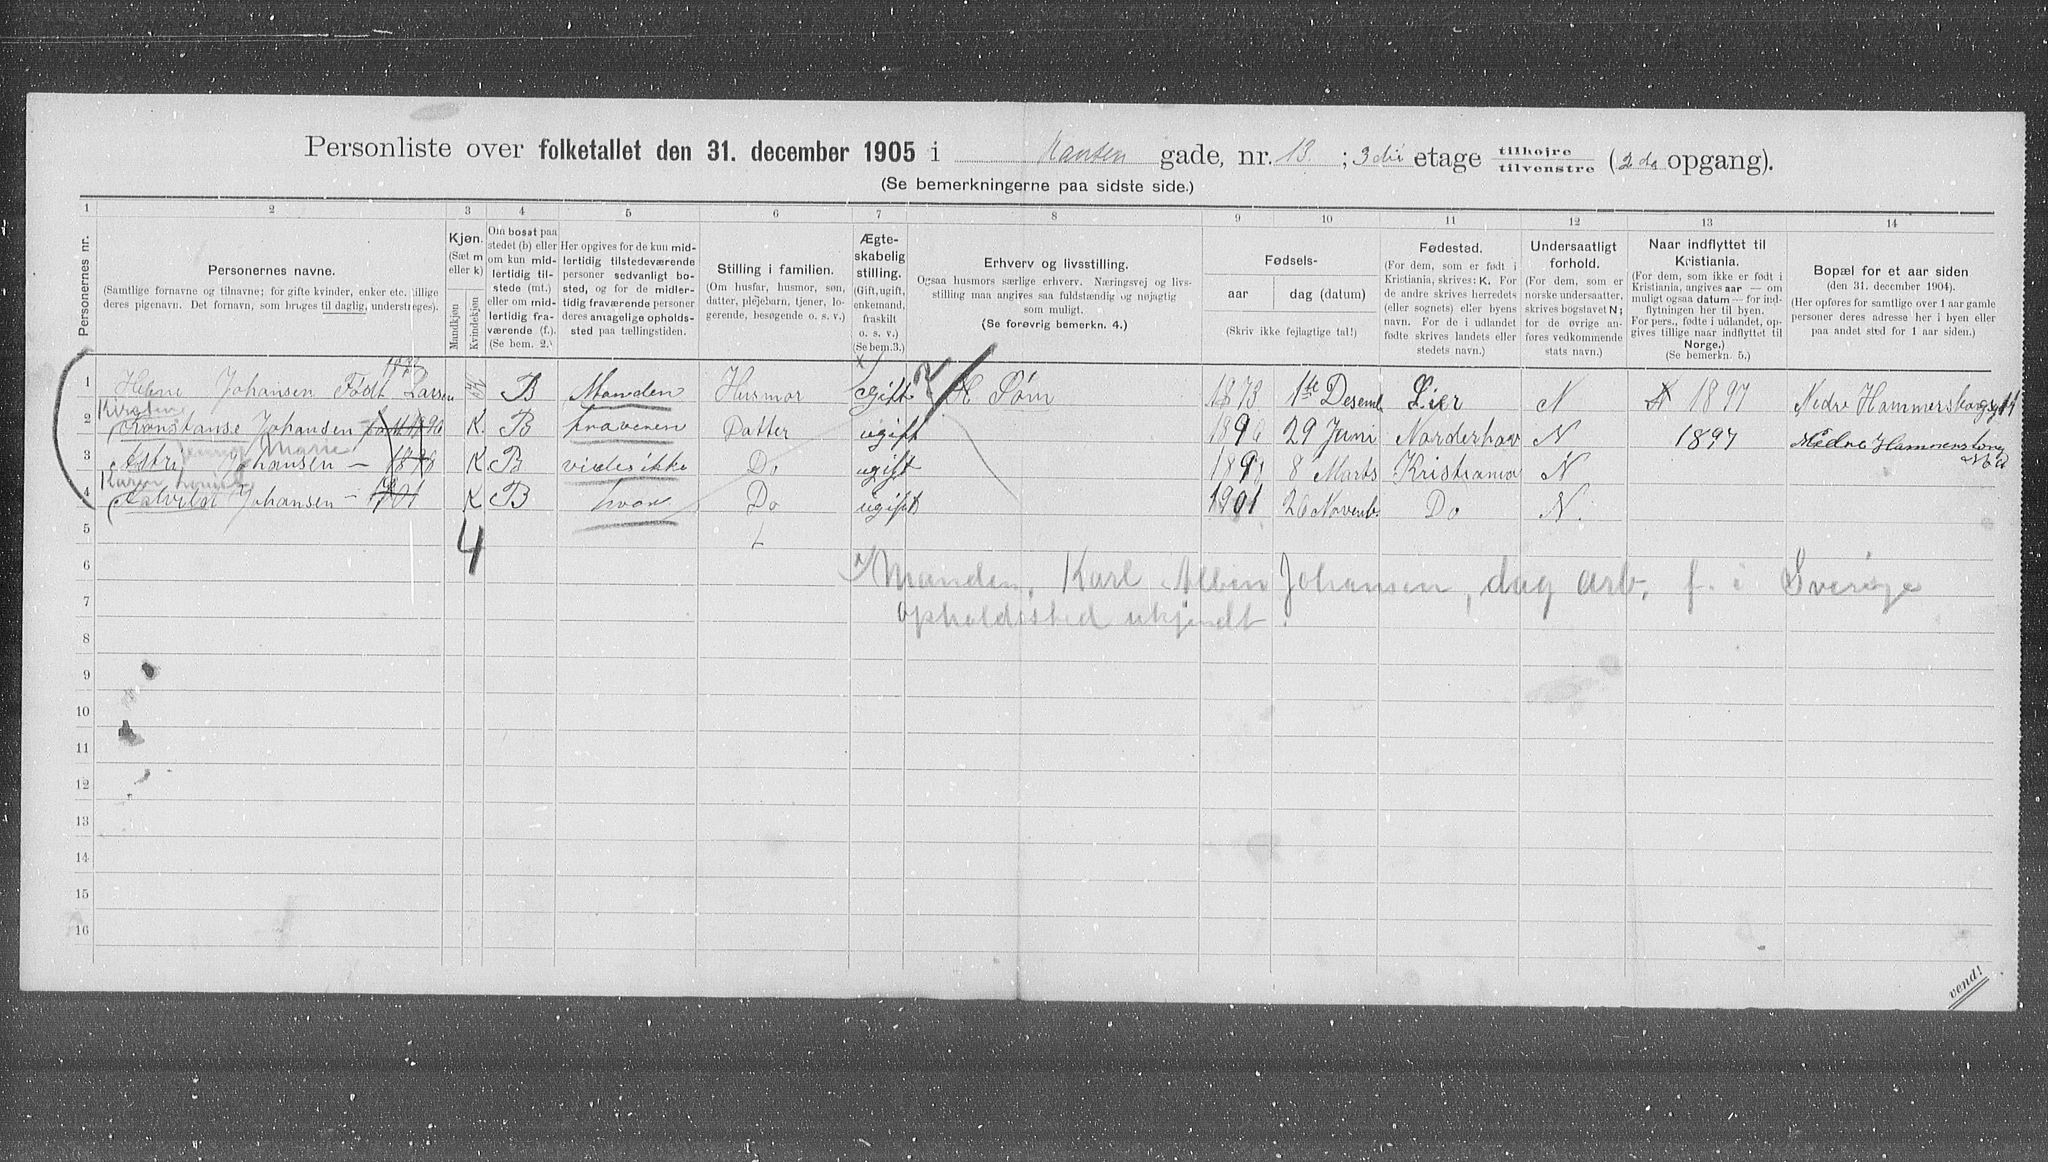 Personliste over folketallet den 31. december 1905 i Hansen gade, nr. 13. ; 3die etage tilhøjre tilvenstre (2de opgang).
(Se bemerkningerne paa sidste side.)
1 2 3 4 5 6 7 8 9 10 11 12 13 14
Personernes nr.
Personernes navne.
(Samtlige fornavne og tilnavne; for gifte kvinder, enker etc. tillige deres pigenavn. Det fornavn, som bruges til daglig, understreges).
Kjøn.
(Sæt m eller k)
Mandkjøn
Kvindekjøn
Om bosat paa stedet (b) eller om kun midlertidig tilstede (mt.) eller om midlertidig fraværende (f.). (Se bem. 2.)
Her opgives for de kun midlertidig tilstedeværende personer sedvanligt bosted, og for de midlertidig fraværende personer deres anagelige opholdssted paa tællingstiden.
Stilling i familien.
(Om husfar, husmor, søn, datter, plejebarn, tjener, logerende, besøgende o. s. v.)
Ægteskabelig stilling.
(Gift, ugift, enkemand, fraskilt o. s. v.)
(Se bem.3.)
Erhverv og livsstilling.
Ogsaa husmors særlige erhverv. Næringsvej og livsstilling maa angives saa fuldstændig og nøjagtig som muligt.
(Se forøvrig bemerkn. 4.)
Fødsels-
aar dag (datum)
(Skriv ikke fejlagtige tal!)
Fødested.
(For dem, som er født i Kristiania, skrives: K. For de andre skrives herredets (eller sognets) eller byens navn. For de i udlandet fødte skrives landets eller stedets navn.)
Undersaatligt forhold.
(For dem, som er norske undersaatter, skrives bogstavet N; for de øvrige anføres vedkommende stats navn).
Naar indflyttet til Kristiania.
(For dem, som ikke er født i Kristiania, angives aar — om muligt ogsaa datum — for indflytningen her til byen. For pers., fødte i udlandet, opgives tillige naar indflyttet til Norge.)
(Se bemerkn. 5.)
Bopæl for et aar siden
(den 31. december 1904).
(Her opføres for samtlige over 1 aar gamle personer deres adresse her i byen eller paa andet sted for 1 aar siden.)
1 Helene Johansen Født Larsen K B Manden Husmor Gift Søm 1873 1ste Desemb Lier N 1897 Nedre Hammersborg 14
Kirsten
2 Konstanse Johansen K. B fraveren Datter ugift 1896 29 Juni Norderhov N 1897 Nedre Hammersborg
Jenny Marie
3 Astri Johansen — K B vides ikke Do ugift 8 Marts Kristiania N
Karen
4 Johansen — K B hvor Do ugift 1901 26 Novemb. Do N.
5
4
6 x/ Manden, Karl Albin Johansen, dag arb, f. i Sverige
7 opholdssted ukjendt.
8
9
10
11
12
13
14
15
16
vend!